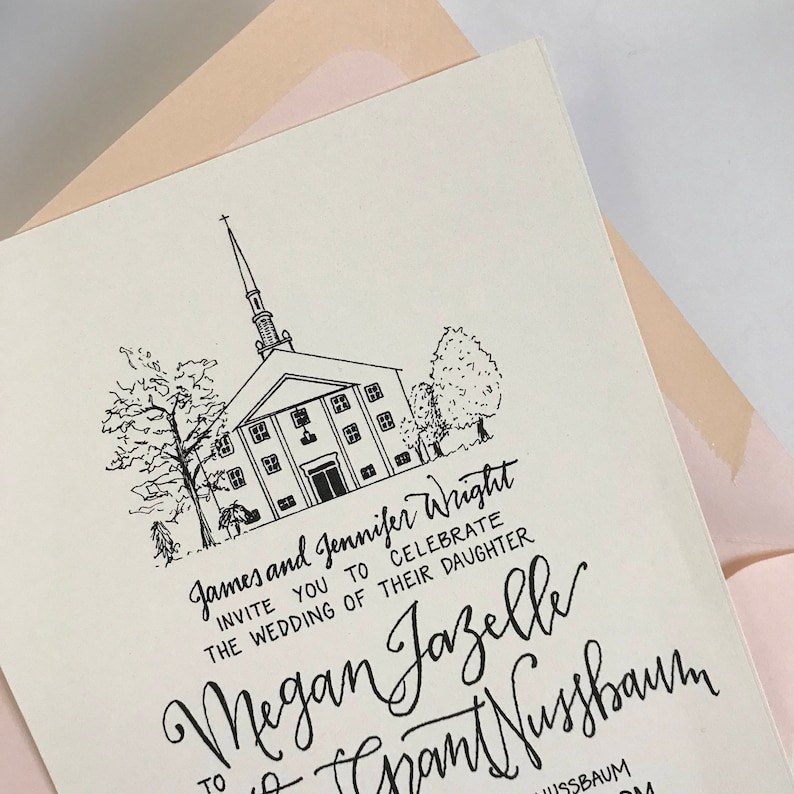 James and Jennifer Wright
INVITE YOU TO CELEBRATE
THE WEDDING OF THEIR DAUGHTER
Megan Jazelle
TO
Grant Nussbaum
NUSSBAUM